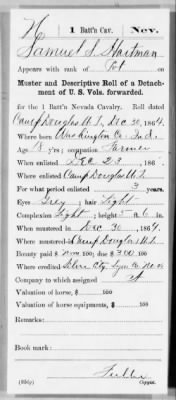 H | 1 Batt'n Cav. | Nev.
Samuel S. Hartman
Appears with rank of Pvt on
Muster and Descriptive Roll of a Detach-
ment of U. S. Vols. forwarded.
for the 1 Batt'n Nevada Cavalry. Roll dated
Camp Douglas U.T., Dec 30, 1864.
Where born Washington Co. Ind.
Age 18 y'rs; occupation Farmer
When enlisted Dec 23, 186
Where enlisted Camp Douglas U.T.
For what period enlisted 3 years.
Eyes Grey; hair Light
Complexion Light; height 5 ft. 6 in.
When mustered in Dec 30, 1864.
Where mustered in Camp Douglas U.T.
Bounty paid $ 100; due $ 300 100
Where credited Silver City, Lyon Co.
Company to which assigned
Valuation of horse, $ 100
Valuation of horse equipments, $ 100
Remarks:
Book mark:
Copyist.